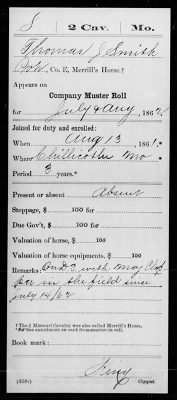 S | 2 Cav. | Mo.
Thomas J Smith
Co. E, Merrill's Horse.†
Appears on
Company Muster Roll
for July & Aug, 1862.
Joined for duty and enrolled:
When Aug 13, 1861.
Where Chillicothe Mo
Period 3 years.
Present or absent Absent
Stoppage, $ 100 for
Due Gov't, $ 100 for
Valuation of horse, $ 100
Valuation of horse equipments, $ 100
Remarks: On D.S. with Maj
in the field since
July 14/62
†The 2 Missouri Cavalry was also called Merrill's Horse.
*See enrollment on card from muster-in roll.
Book mark:
King
(358c) Copyist.